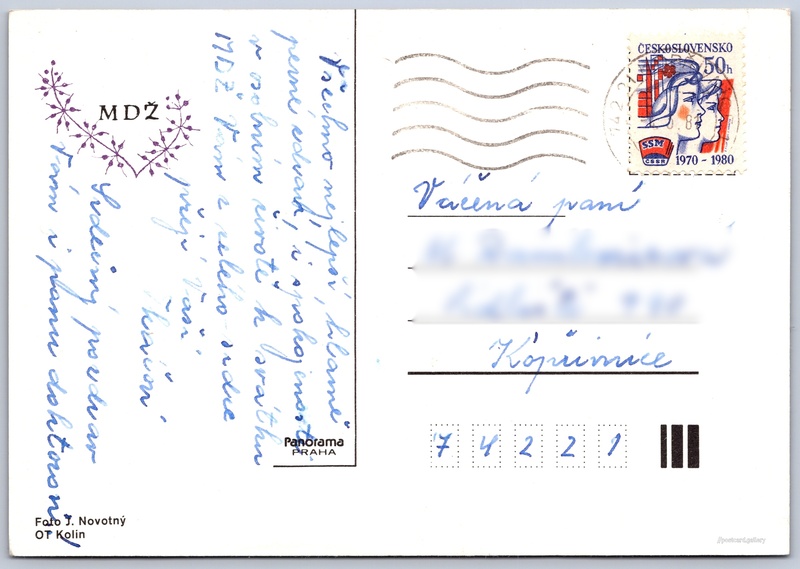 MDŽ
Všechno nejlepší, hlavně
pevné zdraví, i spokojenost
v osobním životě k svátku
MDŽ Vám z celého srdce
přejí Vaši
Srdečný pozdrav
Vám i panu doktorovi
Panorama
PRAHA
Foto J. Novotný
OT Kolín
ČESKOSLOVENSKO
50h
SSM
ČSSR
1970 - 1980
Vážená paní
Kopřivnice
7 4 2 2 1
//postcard.gallery